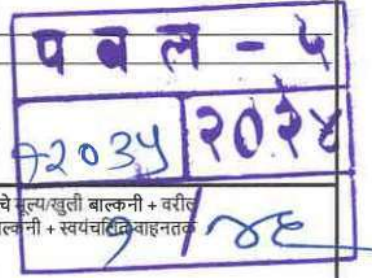 प व ल - ५
२०३५ २०२४
चे मूल्य/खुली बाल्कनी + वरील
बाल्कनी + स्वयंचलित वाहनतळ
१ / ४६